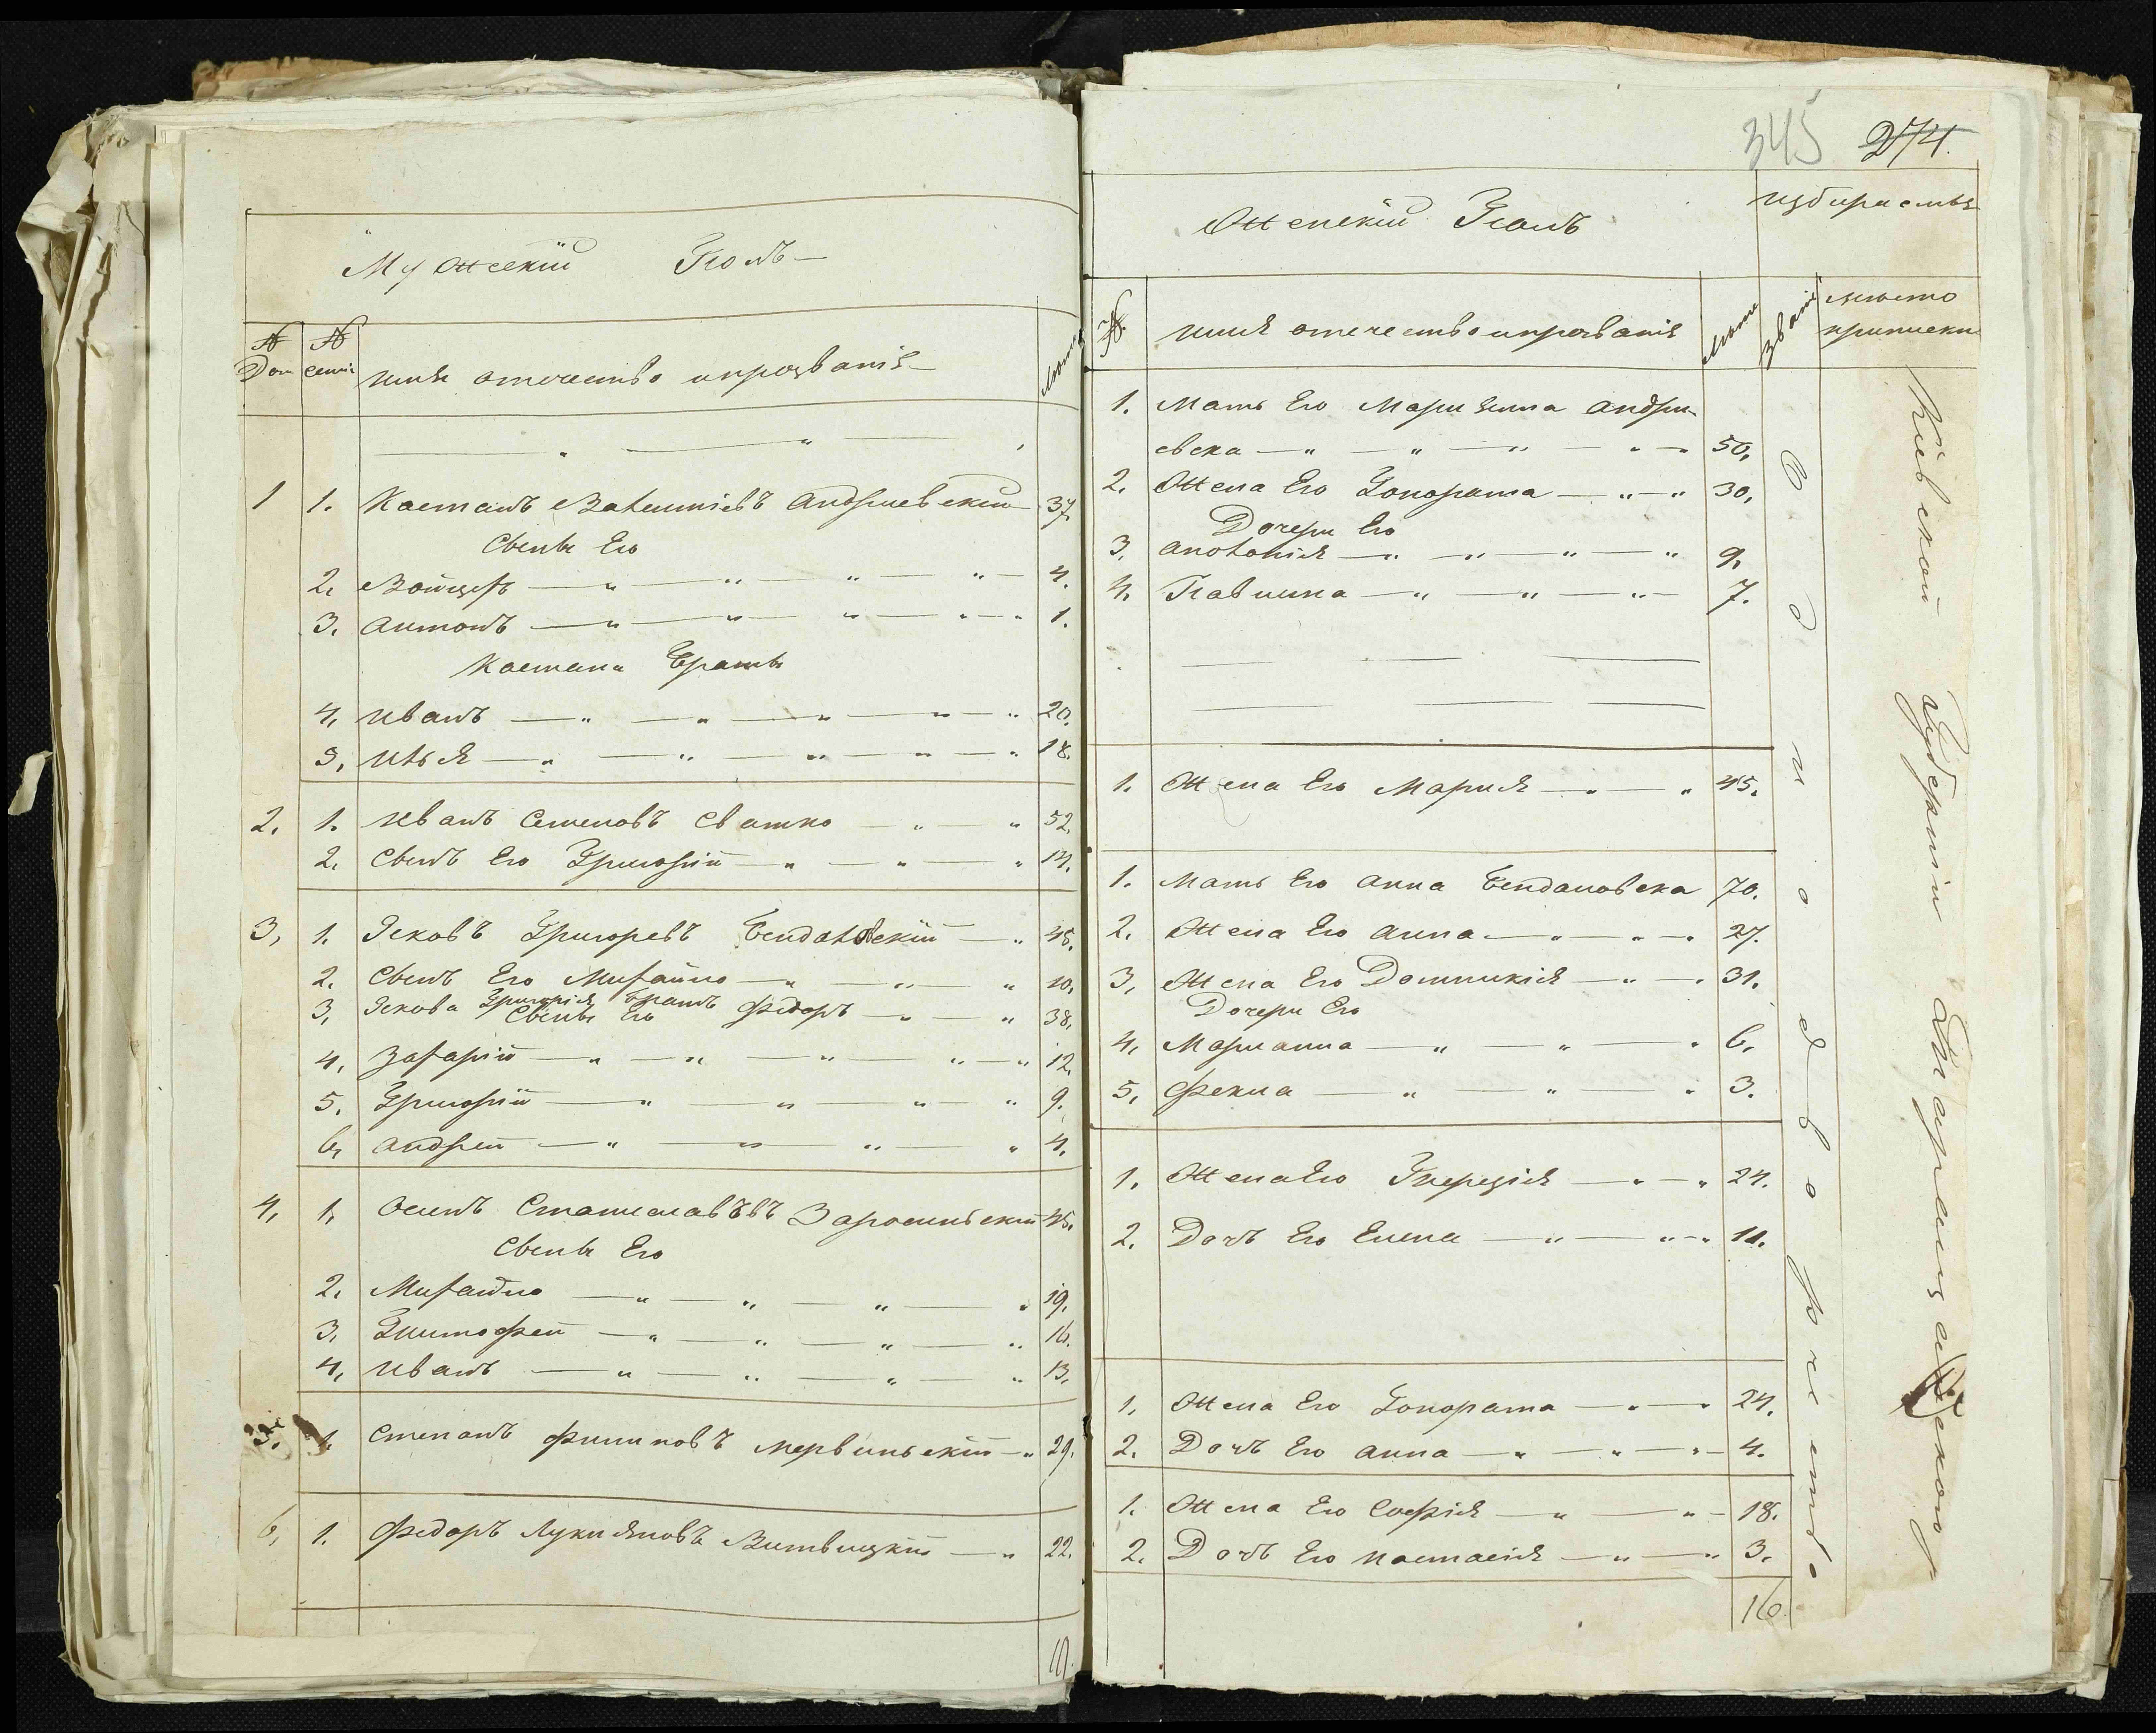 Мужескій Полъ
№ Дом
№ семьи
имя отечество ипрозваніе
лѣта
1 1. Каетанъ Валентіевъ Андриевскій 37.
Сыны Его
2. Войцехъ 4.
3. Антонъ 1.
Каетана Браты
4. Иванъ 20.
5. Илья 18.
2. 1. Иванъ Семеновъ Сватко 52.
2. Сынъ Его Григорій 14.
3. 1. Яковъ Григоревъ Бендаловскій 45.
2. Сынъ Его Михайло 10.
3. Якова Григорія Братъ Федоръ 38.
Сыны Его
4. Захарій 12.
5. Григорій 9.
6. Андрей 4.
4. 1. Осипъ Станиславовъ 45.
Сыны Его
2. Михайло 19.
3. Тимофей 16.
4. Иванъ 13.
5. 1. Степанъ Филиповъ Мервинскій 29.
6. 1. Федоръ Лукияновъ Витвицкій 22.
19.
345 274.
Женскій Полъ
№
имя отечество ипрозваніе
лѣта
званіе
мѣсто
приписки
1. Мать Его Мариянна Андри-
евска 50.
2. Жена Его Гонората 30.
Дочери Его
3. Аполонія 9.
4. Павлина 7.
1. Жена Его Мария 45.
1. Мать Его Анна Бендаловска 70.
2. Жена Его Анна 27.
3. Жена Его Доминикія 31.
Дочери Его
4. Марианна 6.
5. Фекла 3.
1. Жена Его Терезія 24.
2. Дочъ Его Елена 11.
1. Жена Его Гонората 24.
2. Дочъ Его Анна 4.
1. Жена Его Софія 18.
2. Дочъ Его Настасія 3.
16.
Однодворчество
Кіевской Губерніи